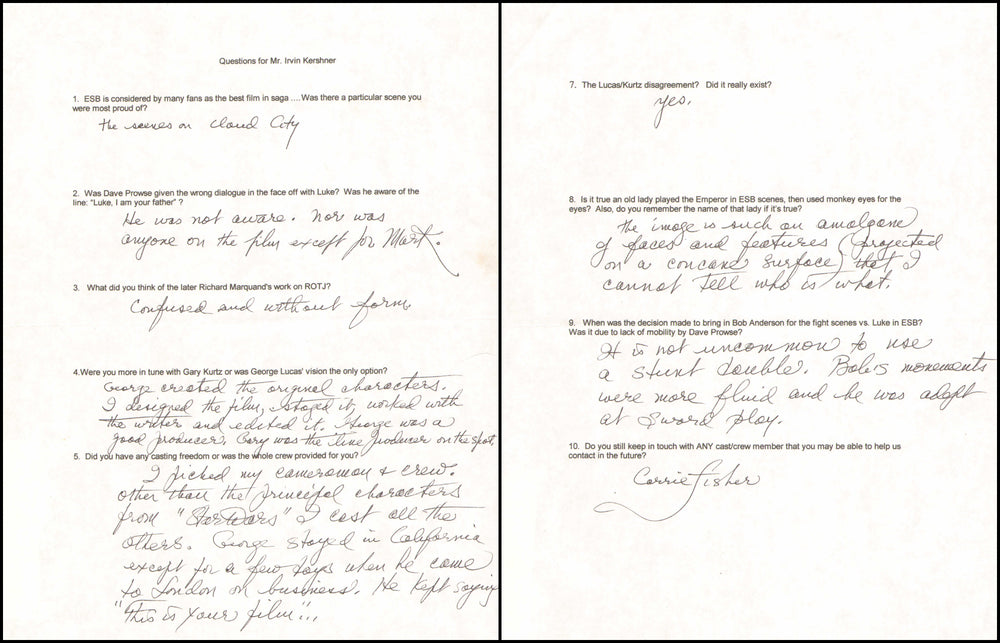 Questions for Mr. Irvin Kershner
1. ESB is considered by many fans as the best film in saga ....Was there a particular scene you
were most proud of?
the scenes on Cloud City
2. Was Dave Prowse given the wrong dialogue in the face off with Luke? Was he aware of the
line: "Luke, I am your father" ?
He was not aware. Nor was
anyone on the film except for Mark.
3. What did you think of the later Richard Marquand's work on ROTJ?
Confused and without form.
4.Were you more in tune with Gary Kurtz or was George Lucas' vision the only option?
George created the original characters.
I designed the film, staged it, worked with
the writer and edited it. George was a
good producer. Gary was the line producer on the spot.
5. Did you have any casting freedom or was the whole crew provided for you?
I picked my cameraman & crew.
Other than the principal characters
from "Star Wars" I cast all the
others. George stayed in California
except for a few days when he came
to London on business. He kept saying
"This is your film"...
7. The Lucas/Kurtz disagreement? Did it really exist?
yes.
8. Is it true an old lady played the Emperor in ESB scenes, then used monkey eyes for the
eyes? Also, do you remember the name of that lady if it's true?
The image is such an amalgame
of faces and features (projected
on a concave surface) that I
cannot tell who is what.
9. When was the decision made to bring in Bob Anderson for the fight scenes vs. Luke in ESB?
Was it due to lack of mobility by Dave Prowse?
It is not uncommon to use
a stunt double. Bob's movements
were more fluid and he was adept
at sword play.
10. Do you still keep in touch with ANY cast/crew member that you may be able to help us
contact in the future?
Carrie Fisher